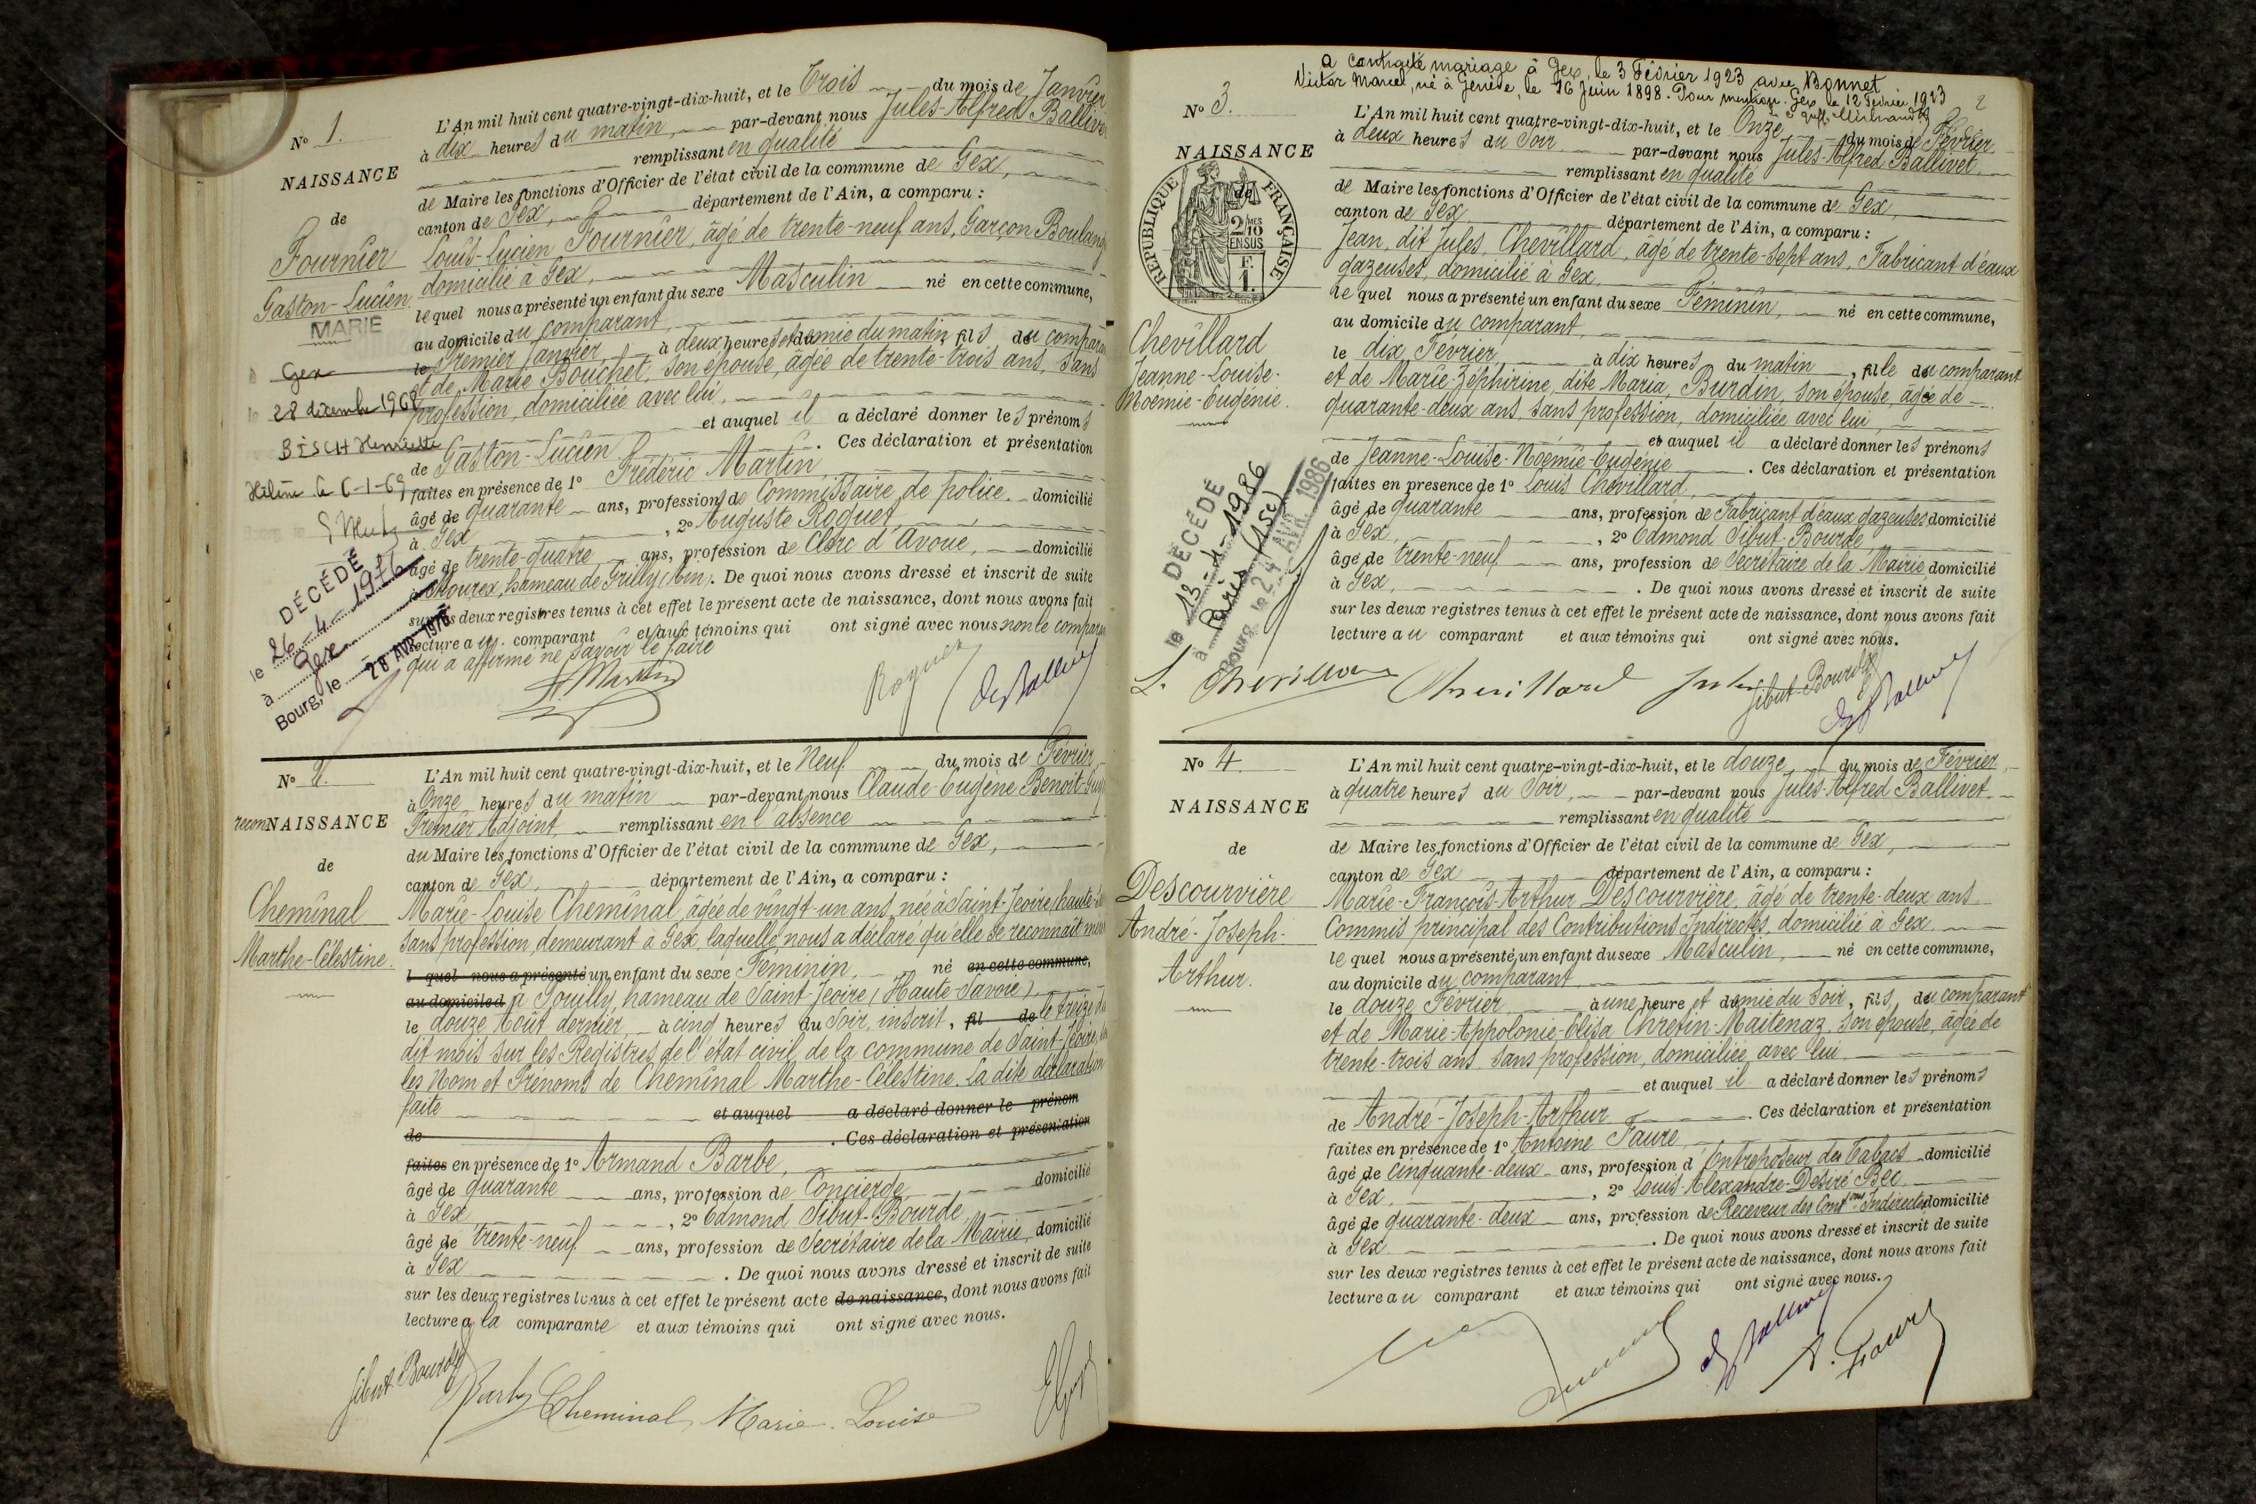 N° 1.
NAISSANCE
de
Fournier
Gaston-Lucien
MARIÉ
à Gex
le 28 décembre 1968
BISCH Henriette
Hélène le 6-1-69
DÉCÉDÉ
le 26-4-1976
à Gex
Bourg, le 28 AVR. 1976
L'An mil huit cent quatre-vingt-dix-huit, et le Trois du mois de Janvier
à dix heures du matin, par-devant nous Jules-Alfred Ballivet
remplissant en qualité
de Maire les fonctions d'Officier de l'état civil de la commune de Gex,
canton de Gex, département de l'Ain, a comparu :
Louis-Lucien Fournier, âgé de trente-neuf ans, Garçon Boulanger
domicilié à Gex,
lequel nous a présenté un enfant du sexe Masculin né en cette commune,
au domicile du comparant,
le Premier Janvier, à deux heures et demie du matin, fils du comparant
et de Marie Bouchet, son épouse, âgée de trente-trois ans, sans
profession, domiciliée avec lui,
et auquel il a déclaré donner les prénoms
de Gaston-Lucien. Ces déclaration et présentation
faites en présence de 1° Frédéric Martin,
âgé de quarante ans, profession de Commissaire de police domicilié
à Gex, 2° Auguste Roguet
âgé de trente-quatre ans, profession de Clerc d'Avoué, domicilié
à Mourex, hameau de Grilly (Ain). De quoi nous avons dressé et inscrit de suite
sur les deux registres tenus à cet effet le présent acte de naissance, dont nous avons fait
lecture au comparant et aux témoins qui ont signé avec nous non le comparant
qui a affirmé ne savoir le faire
F. Martin Roguet Ballivet
N° 2.
reconNAISSANCE
de
Cheminal
Marthe-Célestine.
L'An mil huit cent quatre-vingt-dix-huit, et le Neuf du mois de Février,
à Onze heures du matin par-devant nous Claude-Eugène Benoit-Guy
Premier Adjoint, remplissant en l'absence
du Maire les fonctions d'Officier de l'état civil de la commune de Gex,
canton de Gex, département de l'Ain, a comparu :
Marie-Louise Cheminal, âgée de vingt-un ans, née à Saint-Jeoire, haute-
sans profession, demeurant à Gex, laquelle nous a déclaré qu'elle se reconnaît mère
l quel nous a présenté un enfant du sexe Féminin, né en cette commune,
au domicile d à Pouilly, hameau de Saint-Jeoire (Haute-Savoie)
le douze Août dernier à cinq heures du Soir, inscrit, fil de le treize du
dit mois sur les Registres de l'état civil de la commune de Saint-Jeoire,
les Nom et Prénoms de Cheminal Marthe-Célestine. La dite déclaration
faite et auquel a déclaré donner le prénom
de . Ces déclaration et présentation
faites en présence de 1° Armand Barbe,
âgé de quarante ans, profession de Concierge, domicilié
à Gex, 2° Edmond Sibut-Bourde,
âgé de trente-neuf ans, profession de Secrétaire de la Mairie, domicilié
à Gex. De quoi nous avons dressé et inscrit de suite
sur les deux registres tenus à cet effet le présent acte de naissance, dont nous avons fait
lecture à la comparante et aux témoins qui ont signé avec nous.
Sibut-Bourde Barbe Cheminal Marie-Louise
a contracté mariage à Gex, le 3 Février 1923 avec Bonnet
Victor Marcel, né à Genève, le 16 Juin 1898. Pour mention. Gex, le 12 Février 1923
2
N° 3.
NAISSANCE
de
RÉPUBLIQUE FRANÇAISE
2/10 MES
EN SUS
F.
1.
Chevillard
Jeanne-Louise-
Noémie-Eugénie.
DÉCÉDÉ
le 13-4-1986
à Paris (15e)
Bourg, le 24 AVR. 1986
L'An mil huit cent quatre-vingt-dix-huit, et le Onze du mois de Février
à deux heures du Soir par-devant nous Jules-Alfred Ballivet
remplissant en qualité
de Maire les fonctions d'Officier de l'état civil de la commune de Gex,
canton de Gex département de l'Ain, a comparu :
Jean, dit Jules, Chevillard, âgé de trente-sept ans, Fabricant d'eaux
gazeuses, domicilié à Gex,
lequel nous a présenté un enfant du sexe Féminin, né en cette commune,
au domicile du comparant,
le dix Février à dix heures du matin, fille du comparant
et de Marie-Zéphirine, dite Maria, Burdin, son épouse, âgée de
quarante-deux ans, sans profession, domiciliée avec lui,
et auquel il a déclaré donner les prénoms
de Jeanne-Louise-Noémie-Eugénie. Ces déclaration et présentation
faites en présence de 1° Louis Chevillard,
âgé de quarante ans, profession de Fabricant d'eaux gazeuses domicilié
à Gex, 2° Edmond Sibut-Bourde
âgé de trente-neuf ans, profession de Secrétaire de la Mairie, domicilié
à Gex,. De quoi nous avons dressé et inscrit de suite
sur les deux registres tenus à cet effet le présent acte de naissance, dont nous avons fait
lecture au comparant et aux témoins qui ont signé avec nous.
L. Chevillard Chevillard Jules Sibut-Bourde Ballivet
N° 4.
NAISSANCE
de
Descourvière
André-Joseph-
Arthur.
L'An mil huit cent quatre-vingt-dix-huit, et le douze du mois de Février
à quatre heures du Soir, par-devant nous Jules-Alfred Ballivet
remplissant en qualité
de Maire les fonctions d'Officier de l'état civil de la commune de Gex,
canton de Gex département de l'Ain, a comparu :
Marie-François-Arthur Descourvière, âgé de trente-deux ans
Commis principal des Contributions Indirectes, domicilié à Gex
lequel nous a présenté un enfant du sexe Masculin, né en cette commune,
au domicile du comparant
le douze Février, à une heure et demie du Soir, fils du comparant
et de Marie-Appolonie-Elisa Chrétin-Maitenaz, son épouse, âgée de
trente-trois ans, sans profession, domiciliée avec lui
et auquel il a déclaré donner les prénoms
de André-Joseph-Arthur. Ces déclaration et présentation
faites en présence de 1° Antoine Faure,
âgé de cinquante-deux ans, profession d'Entreposeur des Tabacs domicilié
à Gex, 2° Louis-Alexandre-Désiré Bec
âgé de quarante-deux ans, profession de Receveur des Contons Indirectes domicilié
à Gex. De quoi nous avons dressé et inscrit de suite
sur les deux registres tenus à cet effet le présent acte de naissance, dont nous avons fait
lecture au comparant et aux témoins qui ont signé avec nous.
Ballivet A. Faure